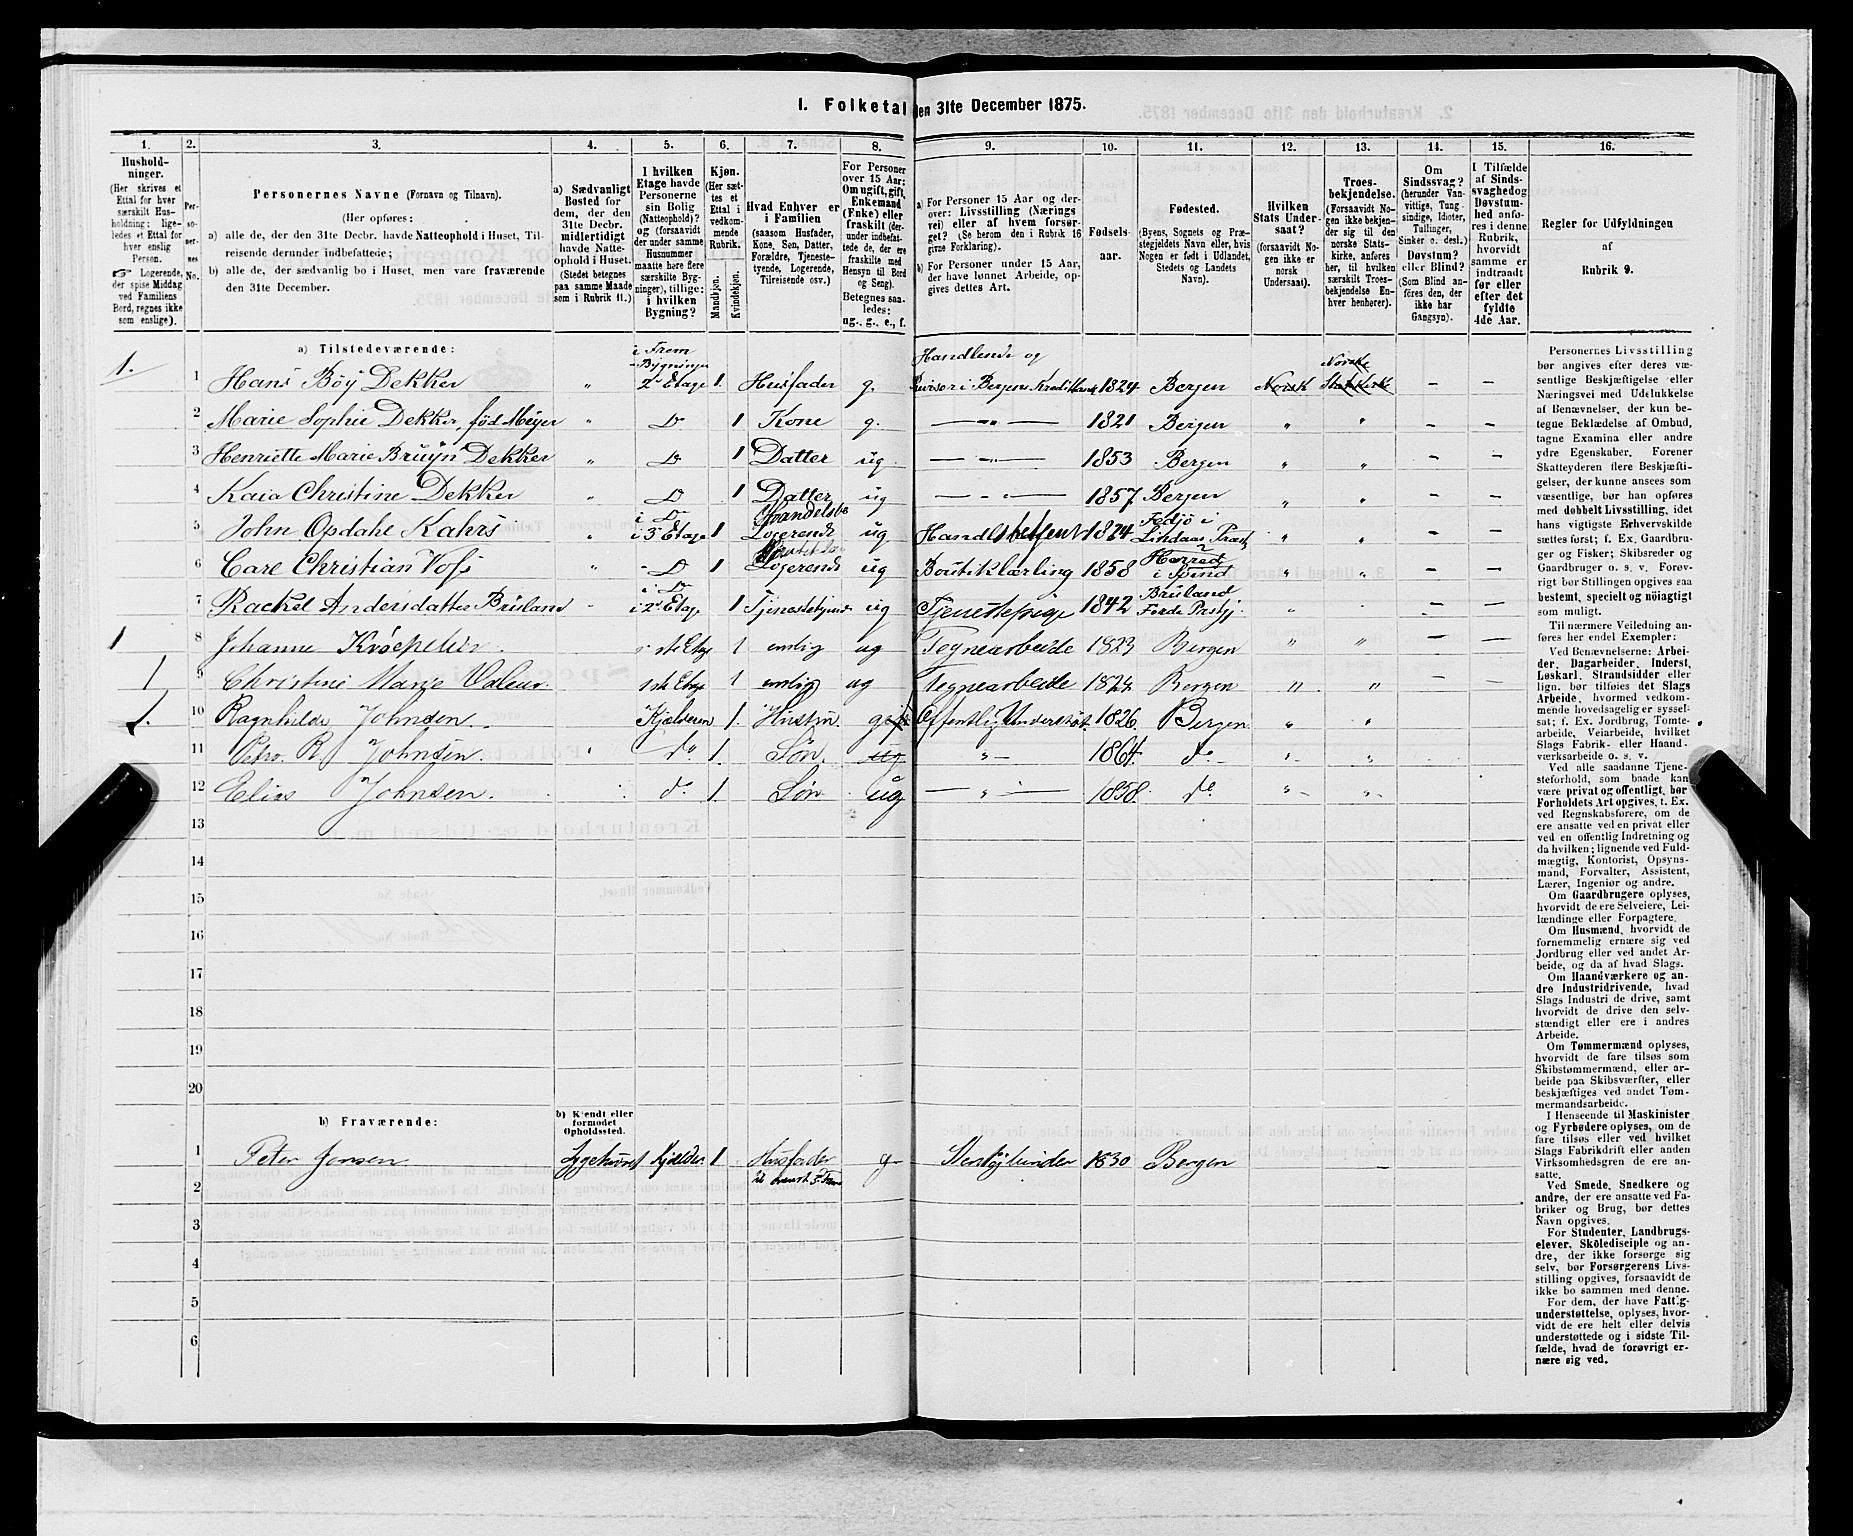 1. Folketal den 31te December 1875.
1. 2. 3. 4. 5. 6. 7. 8. 9. 10. 11. 12. 13. 14. 15. 16.
Hushold-
ninger.
(Her skrives et
Ettal for hver
særskilt Hus-
holdning; lige-
ledes et Ettal for
hver enslig
Person.
☞ Logerende,
der spise Middag
ved Familiens
Bord, regnes ikke
som enslige).
Per-
so-
ner-
nes
No.
Personernes Navne (Fornavn og Tilnavn).
(Her opføres:
a) alle de, der den 31te Decbr. havde Natteophold i Huset, Til-
reisende derunder indbefattede;
b) alle de, der sædvanlig bo i Huset, men vare fraværende
den 31te December.
a) Sædvanligt
Bosted for
dem, der den
31te Decbr.
midlertidigt
havde Natte-
ophold i Huset.
(Stedet betegnes
paa samme Maade
som i Rubrik 11.)
I hvilken
Etage havde
Personerne
sin Bolig
(Natteophold)?
og (forsaavidt
der under samme
Husnummer
maatte høre flere
særskilte Byg-
ninger), tillige:
i hvilken
Bygning?
Kjøn.
(Her sæt-
tes et
Ettal i
vedkom-
mende
Rubrik.)
Mandkjøn.
Kvindekjøn.
Hvad Enhver er
i Familien
(saasom Husfader,
Kone, Søn, Datter,
Forældre, Tjeneste-
tyende, Logerende,
Tilreisende osv.)
For Personer
over 15 Aar:
Om ugift, gift,
Enkemand
(Enke) eller
fraskilt (der-
under indbefat-
tede de, der ere
fraskilte med
Hensyn til Bord
og Seng).
Betegnes saa-
ledes:
ug., g., e., f.
a) For Personer 15 Aar og der-
over: Livsstilling (Nærings
vei) eller af hvem forsør-
get? (Se herom den i Rubrik 16
givne Forklaring).
b) For Personer under 15 Aar,
der have lønnet Arbeide, op-
gives dettes Art.
Fødsels-
aar.
Fødested.
(Byens, Sognets og Præ-
stegjeldets Navn eller, hvis
Nogen er født i Udlandet,
Stedets og Landets
Navn).
Hvilken
Stats Under-
saat?
(forsaavidt No-
gen ikke er
norsk
Undersaat).
Troes-
bekjendelse.
(Forsaavidt No-
gen ikke bekjen-
der sig til den
norske Stats-
kirke, anføres
her, til hvilken
særskilt Troes-
bekjendelse En-
hver henhører).
Om
Sindssvag?
(herunder Van-
vittige, Tung-
sindige, Idioter,
Tullinger,
Sinker o. desl.)
Døvstum?
eller Blind?
(Som Blind an-
føres den, der
ikke har
Gangsyn).
I Tilfælde
af Sinds-
svaghed og
Døvstum-
hed anfø-
res i denne
Rubrik,
hvorvidt
samme er
indtraadt
før eller
efter det
fyldte
4de Aar.
Regler for Udfyldningen
af
Rubrik 9.
a) Tilstedeværende:
1. 1 Hans Böÿ Dekker " i Frem Bygningen 2den Etage 1. Husfader g. Handlende og Revisor i Bergens Kreditbank 1824 Bergen Norsk Norske Statskirke — —
2 Marie Sophie Dekker, fød Meÿer " Do 1 Kone g. — " — 1821 Bergen " " — —
3 Henriette Marie Bruÿn Dekker " Do 1 Datter ug. — " — 1853 Bergen " " — —
4 Kaia Christine Dekker " Do 1 Datter ug — " — 1857 Bergen " " — —
5 John Opdahl Kahrs " i Do i 3die Etage 1 Logerende ug Handelsbetjent 1874 Fedjö i Lindaas Præst " " — —
6 Carl Christian Vofs " Do 1 Logerende ug Boutiklærling 1858 " " — —
7 Rackel Andersdatter Bruland " i Do i 2den Etage 1 Tjenestetyende ug Tjenestepige 1842 Bruland Förde Prestgj. " " — —
1 8 Johanne Kröepelien 1ste Etage 1 enslig ug 1823 Bergen " " — —
1 9 Christine Marie Valeur 1ste Etage 1 enslig ug 1824 Bergen " " — —
1. 10 Ragnhilde Johnsen Kjelderen 1. Hustru. gift Offentlig Understøt. 1826 Bergen " "
11 Petro. R. Johnsen. do 1. Søn. ug " 1864. do " "
12 Elias Johnsen. do 1. Søn ug — " — 1858. do " "
13
14
15
16
17
18
19
20
b) Fraværende:
b) Kjendt eller
formodet
Opholdssted.
1 Peter Jonsen Sygehuset Kjelder 1 Husfader g 1830 Bergen —
2
3
4
5
6
Personernes Livsstilling
bør angives efter deres væ-
sentlige Beskjæftigelse eller
Næringsvei med Udelukkelse
af Benævnelser, der kun be-
tegne Beklædelse af Ombud,
tagne Examina eller andre
ydre Egenskaber. Forener
Skatteyderen flere Beskjæfti-
gelser, der kunne ansees som
væsentlige, bør han opføres
med dobbelt Livsstilling, idet
hans vigtigste Erhvervskilde
sættes først; f. Ex. Gaardbru-
ger og Fisker; Skibsreder og
Gaardbruger o. s. v. Forøv-
rigt bør Stillingen opgives saa
bestemt, specielt og nöiagtigt
som muligt.
Til nærmere Veiledning an-
føres her endel Exempler:
Ved Benævnelserne: Arbei-
der, Dagarbeider, Inderst,
Løskarl, Strandsidder eller
lign. bør tilføies det Slags
Arbeide, hvormed vedkom-
mende hovedsagelig er syssel-
sat; f. Ex. Jordbrug, Tomte-
arbeide, Veiarbeide, hvilket
Slags Fabrik- eller Haand-
værksarbeide o. s. v.
Ved alle saadanne Tjene-
steforhold, som baade kan
være privat og offentligt, bør
Forholdets Art opgives, t. Ex.
ved Regnskabsførere, om de
ere ansatte ved en privat eller
ved en offentlig Indretning og
da hvilken; lignende ved Fuld-
mægtig, Kontorist, Opsyns-
mand, Forvalter, Assistent,
Lærer, Ingeniør og andre.
Om Gaardbrugere oplyses,
hvorvidt de ere Selveiere, Lei-
lændinge eller Forpagtere.
Om Husmænd, hvorvidt de
fornemmelig ernære sig ved
Jordbrug eller ved andet Ar-
beide, og da af hvad Slags.
Om Haandværkere og an-
dre Industridrivende, hvad
Slags Industri de drive, samt
hvorvidt de drive den selv-
stændigt eller ere i andres
Arbeide.
Om Tømmermænd oplyses,
hvorvidt de fare tilsøs som
Skibstømmermænd, eller ar-
beide paa Skibsværfter, eller
beskjæftiges ved andet Tøm-
mermandsarbeide.
I Henseende til Maskinister
og Fyrbødere oplyses, om de
fare tilsøs eller ved hvilket
Slags Fabrikdrift eller anden
Virksomhedsgren de ere an-
satte.
Ved Smede, Snedkere og
andre, der ere ansatte ved Fa-
briker og Brug, bør dettes
Navn opgives.
For Studenter, Landbrugs-
elever, Skoledisciple og an-
dre, der ikke forsørge sig
selv, bør Forsørgerens Livs-
stilling opgives, forsaavidt de
ikke bo sammen med denne.
For dem, der have Fattig-
understøttelse, oplyses, hvor-
vidt de ere helt eller delvis
understøttede og i sidste Til-
fælde, hvad de forøvrigt er-
nære sig ved.